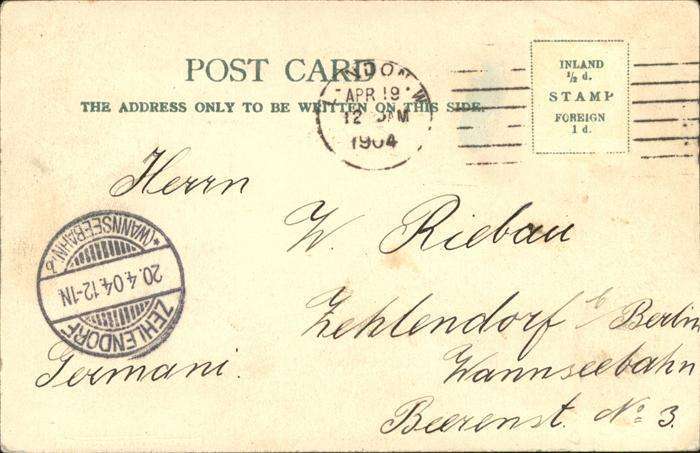 POST CARD
THE ADDRESS ONLY TO BE WRITTEN ON THIS SIDE.
LONDON. W
APR 19
12 AM
1904
INLAND
½ d.
STAMP
FOREIGN
1 d.
Herrn
W. Riebau
Zehlendorf b/ Berlin
Wannseebahn
Beerenst. No: 3.
Germani.
*(WANNSEEBAHN) b
20.4.04.12-1N
ZEHLENDORF